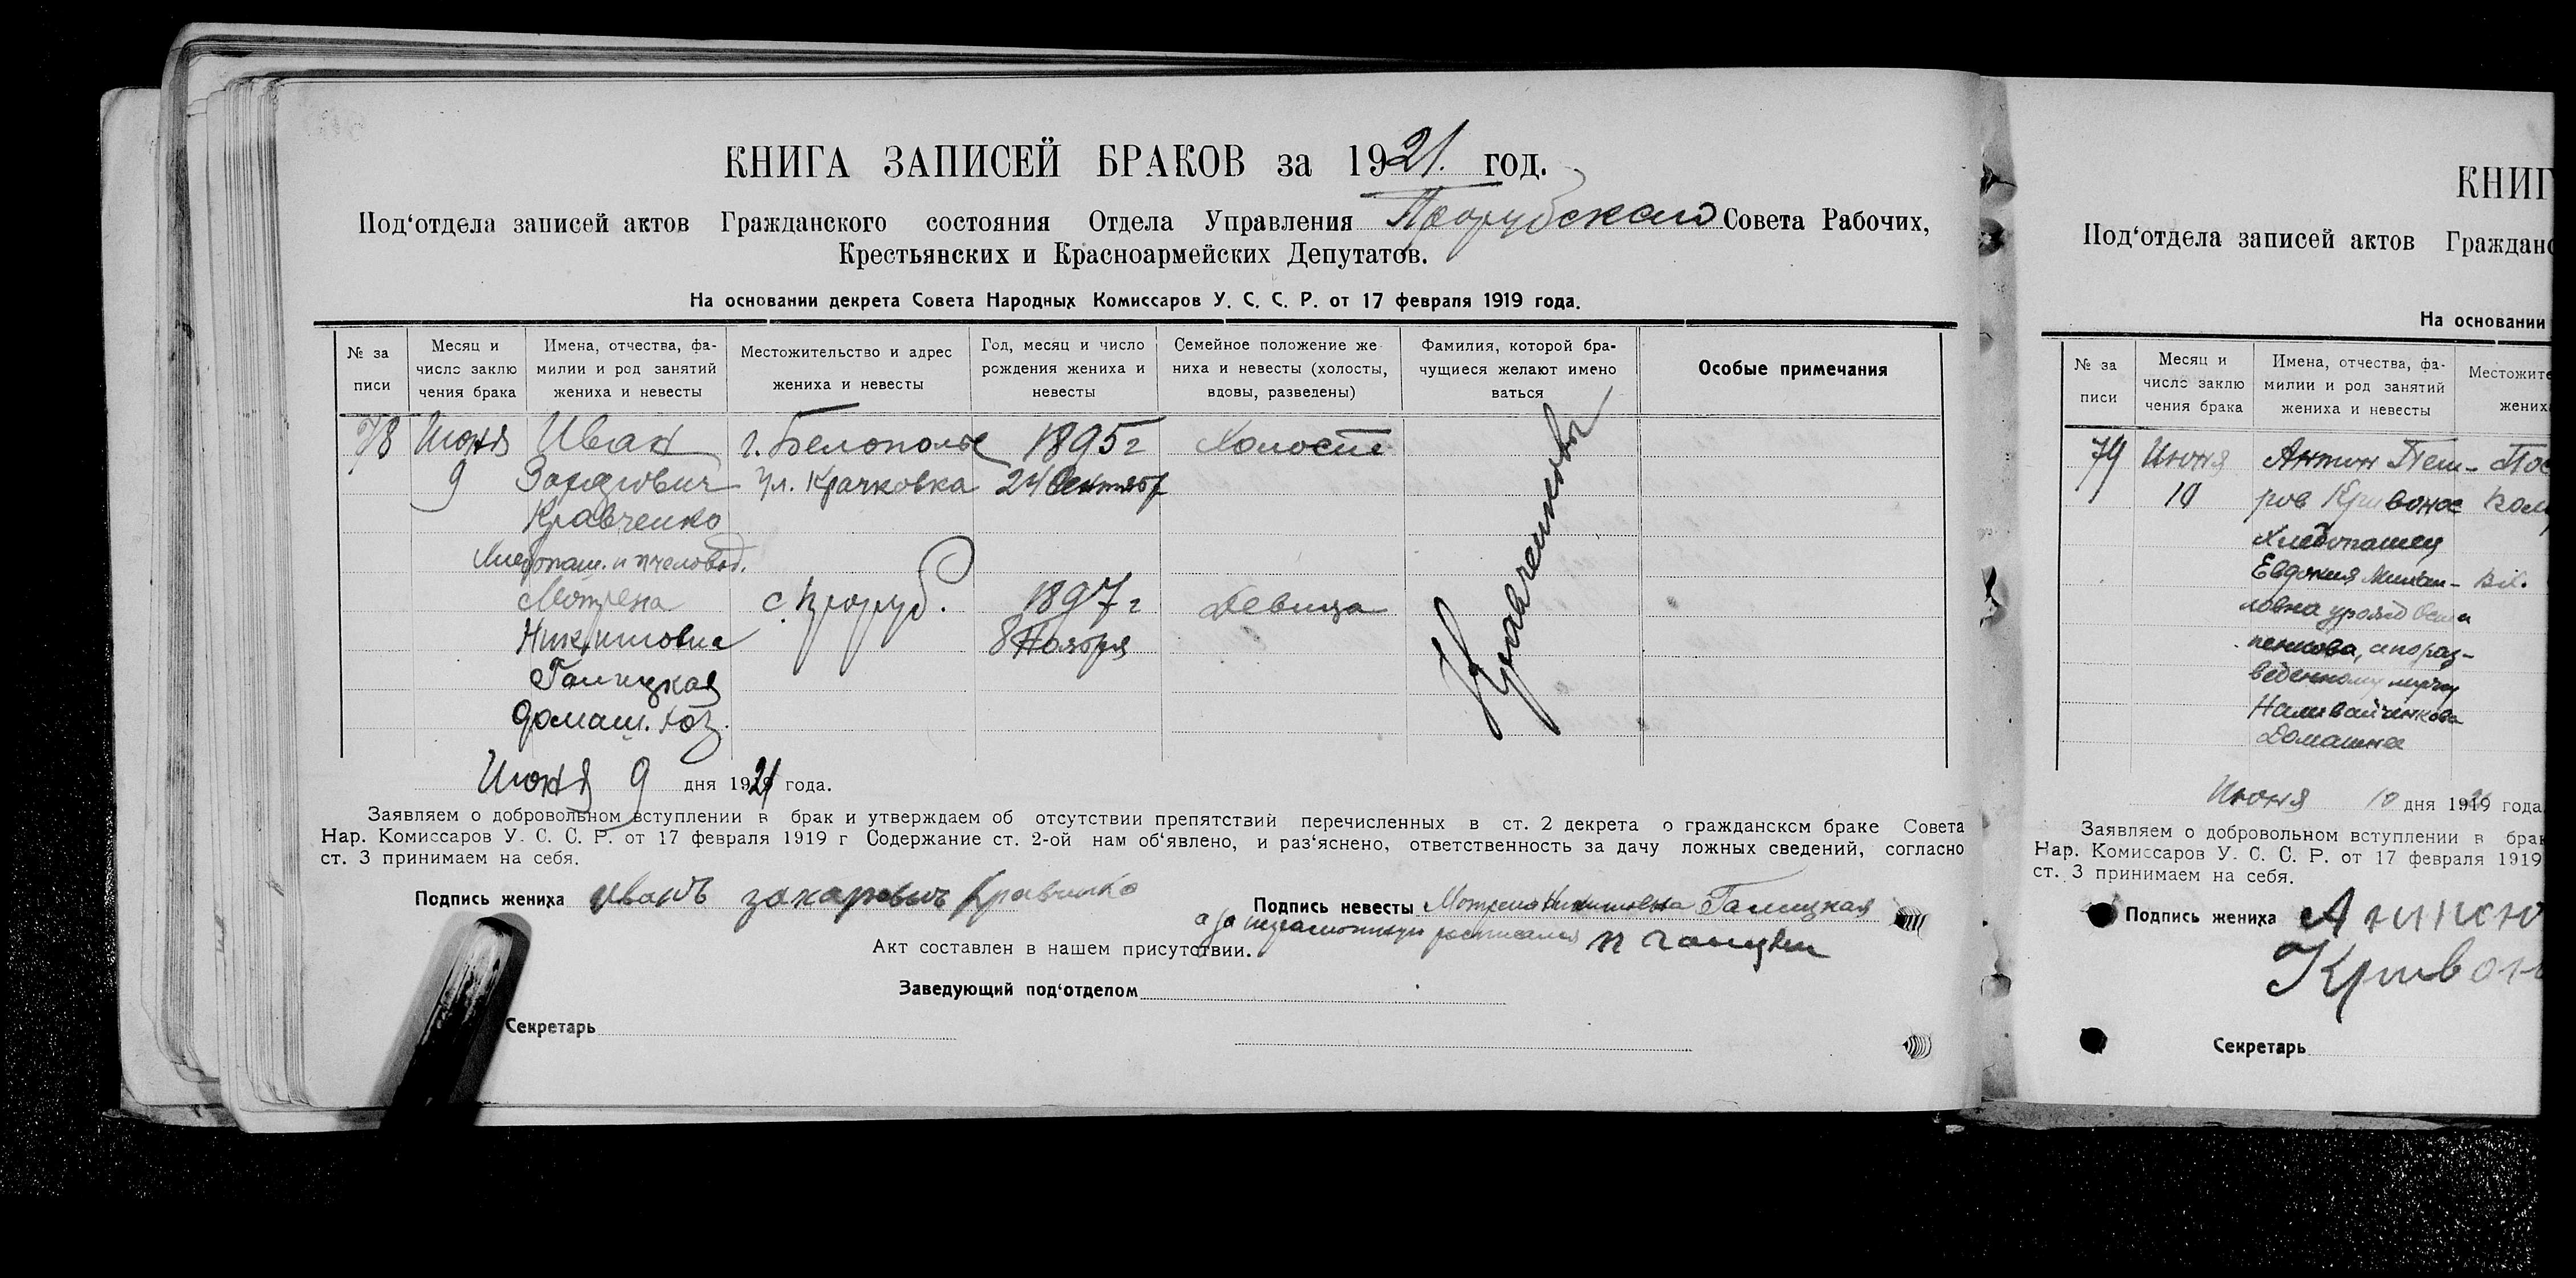 КНИГА ЗАПИСЕЙ БРАКОВ за 1921. год.
Под‘отдела записей актов Гражданского состояния Отдела Управления Прорубскаго Совета Рабочих,
Крестьянских и Красноармейских Депутатов.
На основании декрета Совета Народных Комиссаров У. С. С. Р. от 17 февраля 1919 года.
№ за
писи
Месяц и
число заклю
чения брака
Имена, отчества, фа-
милии и род занятий
жениха и невесты
Местожительство и адрес
жениха и невесты
Год, месяц и число
рождения жениха и
невесты
Семейное положение же
ниха и невесты (холосты,
вдовы, разведены)
Фамилия, которой бра-
чущиеся желают имено
ваться
Особые примечания
78 Июня Иван г. Белополье 1895 г Холост
9 Захарович ул. Крачковка 24 Сентябр
Кравченко
Хлебопаш. и пчеловод.
Мотрена с. Проруб. 1897 г Девица
Никитовна 8 Ноября
Галицкая
домаш. хоз.
Кравченковы
Июня 9 дня 1921 года.
Заявляем о добровольном вступлении в брак и утверждаем об отсутствии препятствий перечисленных в ст. 2 декрета о гражданском браке Совета
Нар. Комиссаров У. С. С. Р. от 17 февраля 1919 г Содержание ст. 2-ой нам об‘явлено, и раз‘яснено, ответственность за дачу ложных сведений, согласно
ст. 3 принимаем на себя.
Подпись жениха Иванъ захаровичъ Кравченко
Подпись невесты Мотрена Никитовна Галицкая
а за неграмотную росписался П Галицкий
Акт составлен в нашем присутствии.
Заведующий под‘отделом
Секретарь
КНИГ
Под‘отдела записей актов Гражданс
На основании
№ за
писи
Месяц и
число заклю
чения брака
Имена, отчества, фа-
милии и род занятий
жениха и невесты
Местожите
жениха
79 Июня Антон Пет-
10 ров Кривонос
Хлебопашец
Евдокия Михай-
ловна урожд Оста
пенкова, а по раз-
веденному мужу
Наливайченкова
Домашнее
Июня 10 дня 1921 года
Заявляем о добровольном вступлении в брак
Нар. Комиссаров У. С. С. Р. от 17 февраля 1919
ст. 3 принимаем на себя.
Подпись жениха Антон
Кривон
Секретарь